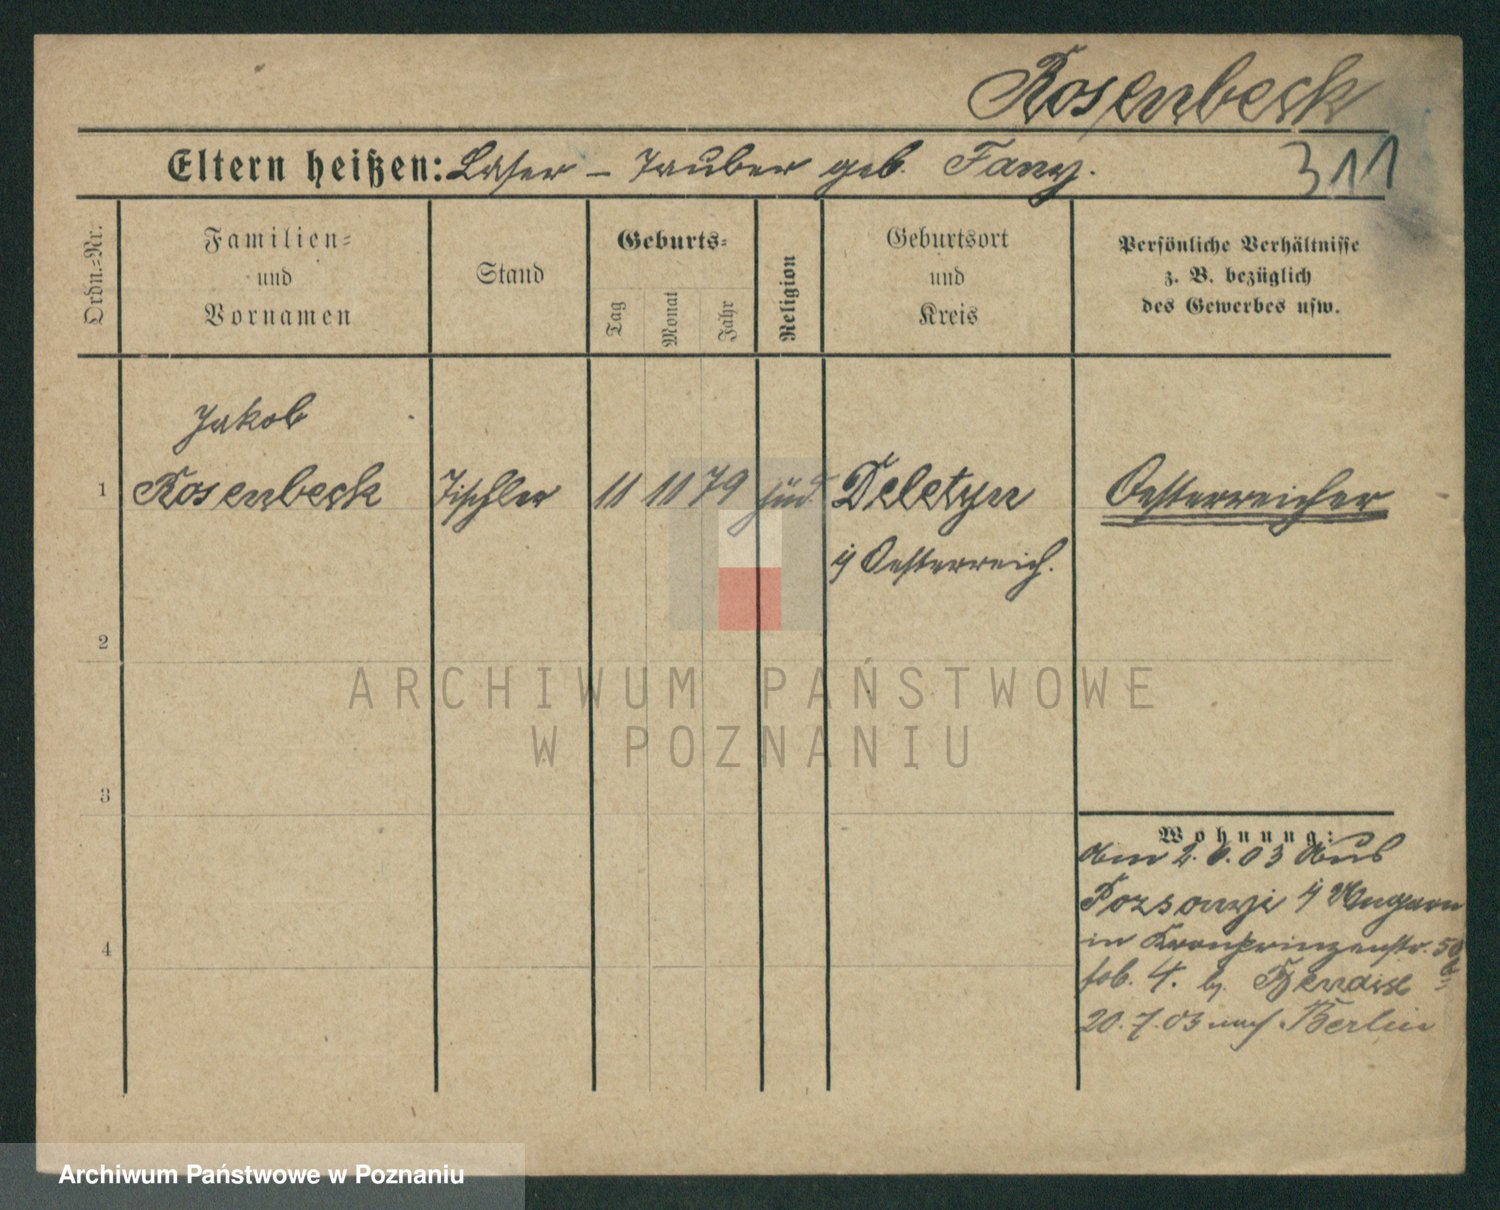 Rosenbeck
Eltern heißen: Laser – Tauber geb. Fany.
311
Ordn.-Nr.
Familien-
und
Vornamen
Stand
Geburts-
Tag
Monat
Jahr
Religion
Geburtsort
und
Kreis
Persönliche Verhältnisse
z. B. bezüglich
des Gewerbes usw.
Jakob
1 Rosenbeck Tischler 11 11 79 jüd. Deletyn Oesterreicher
i/ Oesterreich.
2
ARCHIWUM PAŃSTWOWE
W POZNANIU
3
Wohnung:
2. 6. 03 aus
Pozsonyi i/ Ungarn
in Kronprinzenstr. 50
4
4. b.
20. 7. 03 nach Berlin
Archiwum Państwowe w Poznaniu